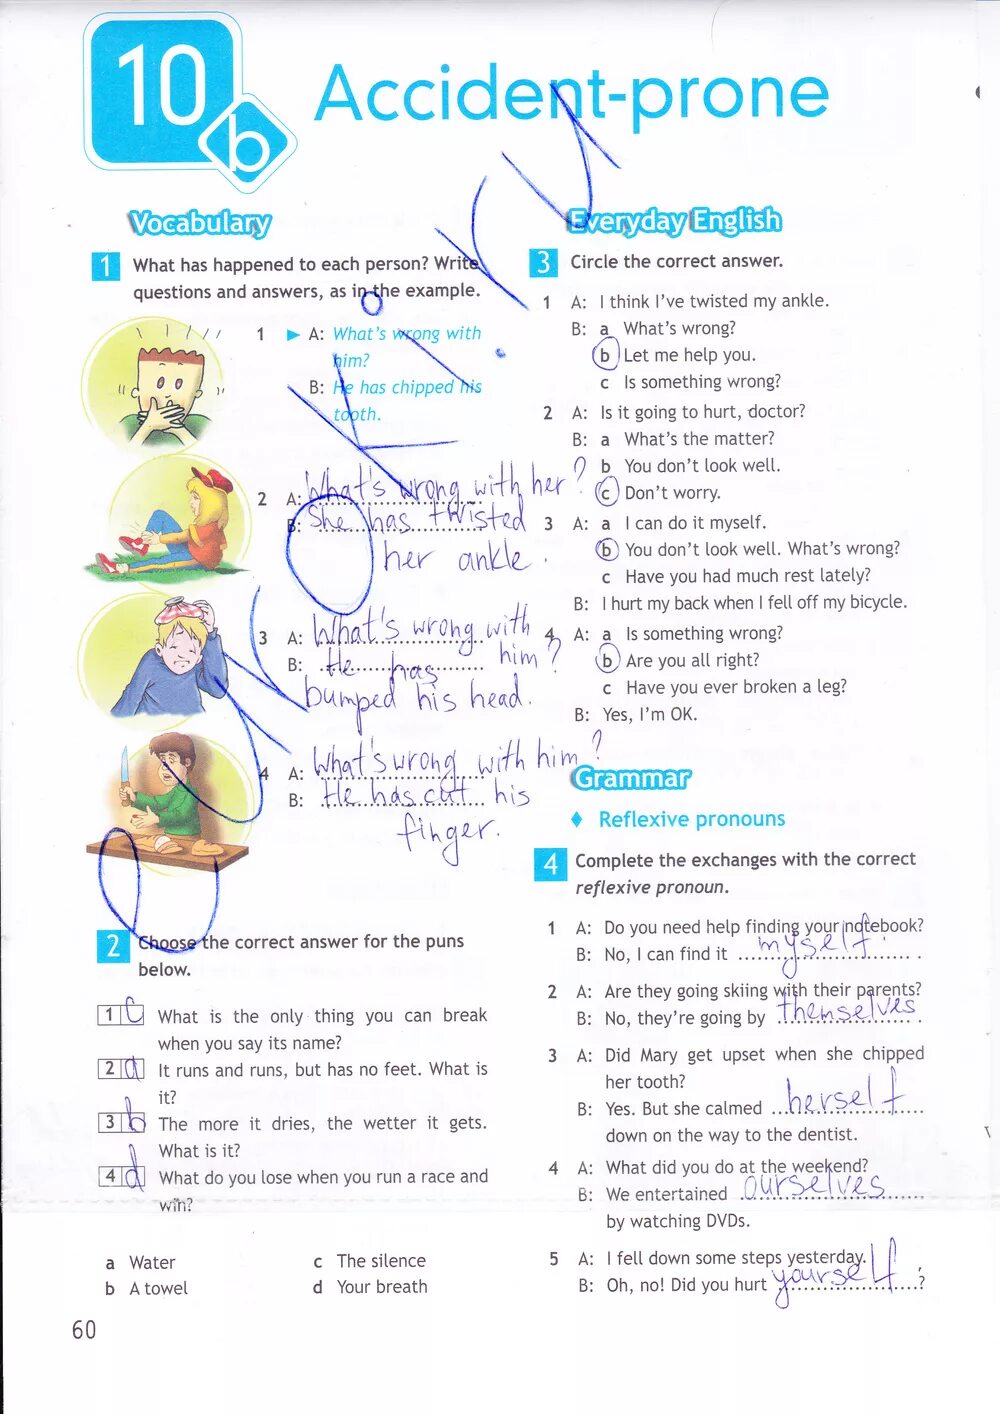 10
b
Accident-prone
Vocabulary
1 What has happened to each person? Write
questions and answers, as in the example.
1 ► A: What's wrong with
him?
B: He has chipped his
tooth.
2 A: What's wrong with her?
B: She has twisted
her ankle.
3 A: What's wrong with
him?
B: He has
bumped his head.
4 A: What's wrong with him?
B: He has cut his
finger.
2 Choose the correct answer for the puns
below.
1 c What is the only thing you can break
when you say its name?
2 a It runs and runs, but has no feet. What is
it?
3 b The more it dries, the wetter it gets.
What is it?
4 d What do you lose when you run a race and
win?
a Water
b A towel
c The silence
d Your breath
60
Everyday English
3 Circle the correct answer.
1 A: I think I've twisted my ankle.
B: a What's wrong?
b Let me help you.
c Is something wrong?
2 A: Is it going to hurt, doctor?
B: a What's the matter?
b You don't look well.
c Don't worry.
3 A: a I can do it myself.
b You don't look well. What's wrong?
c Have you had much rest lately?
B: I hurt my back when I fell off my bicycle.
4 A: a Is something wrong?
b Are you all right?
c Have you ever broken a leg?
B: Yes, I'm OK.
Grammar
♦ Reflexive pronouns
4 Complete the exchanges with the correct
reflexive pronoun.
1 A: Do you need help finding your notebook?
B: No, I can find it myself.
2 A: Are they going skiing with their parents?
B: No, they're going by themselves.
3 A: Did Mary get upset when she chipped
her tooth?
B: Yes. But she calmed herself
down on the way to the dentist.
4 A: What did you do at the weekend?
B: We entertained ourselves
by watching DVDs.
5 A: I fell down some steps yesterday.
B: Oh, no! Did you hurt yourself?